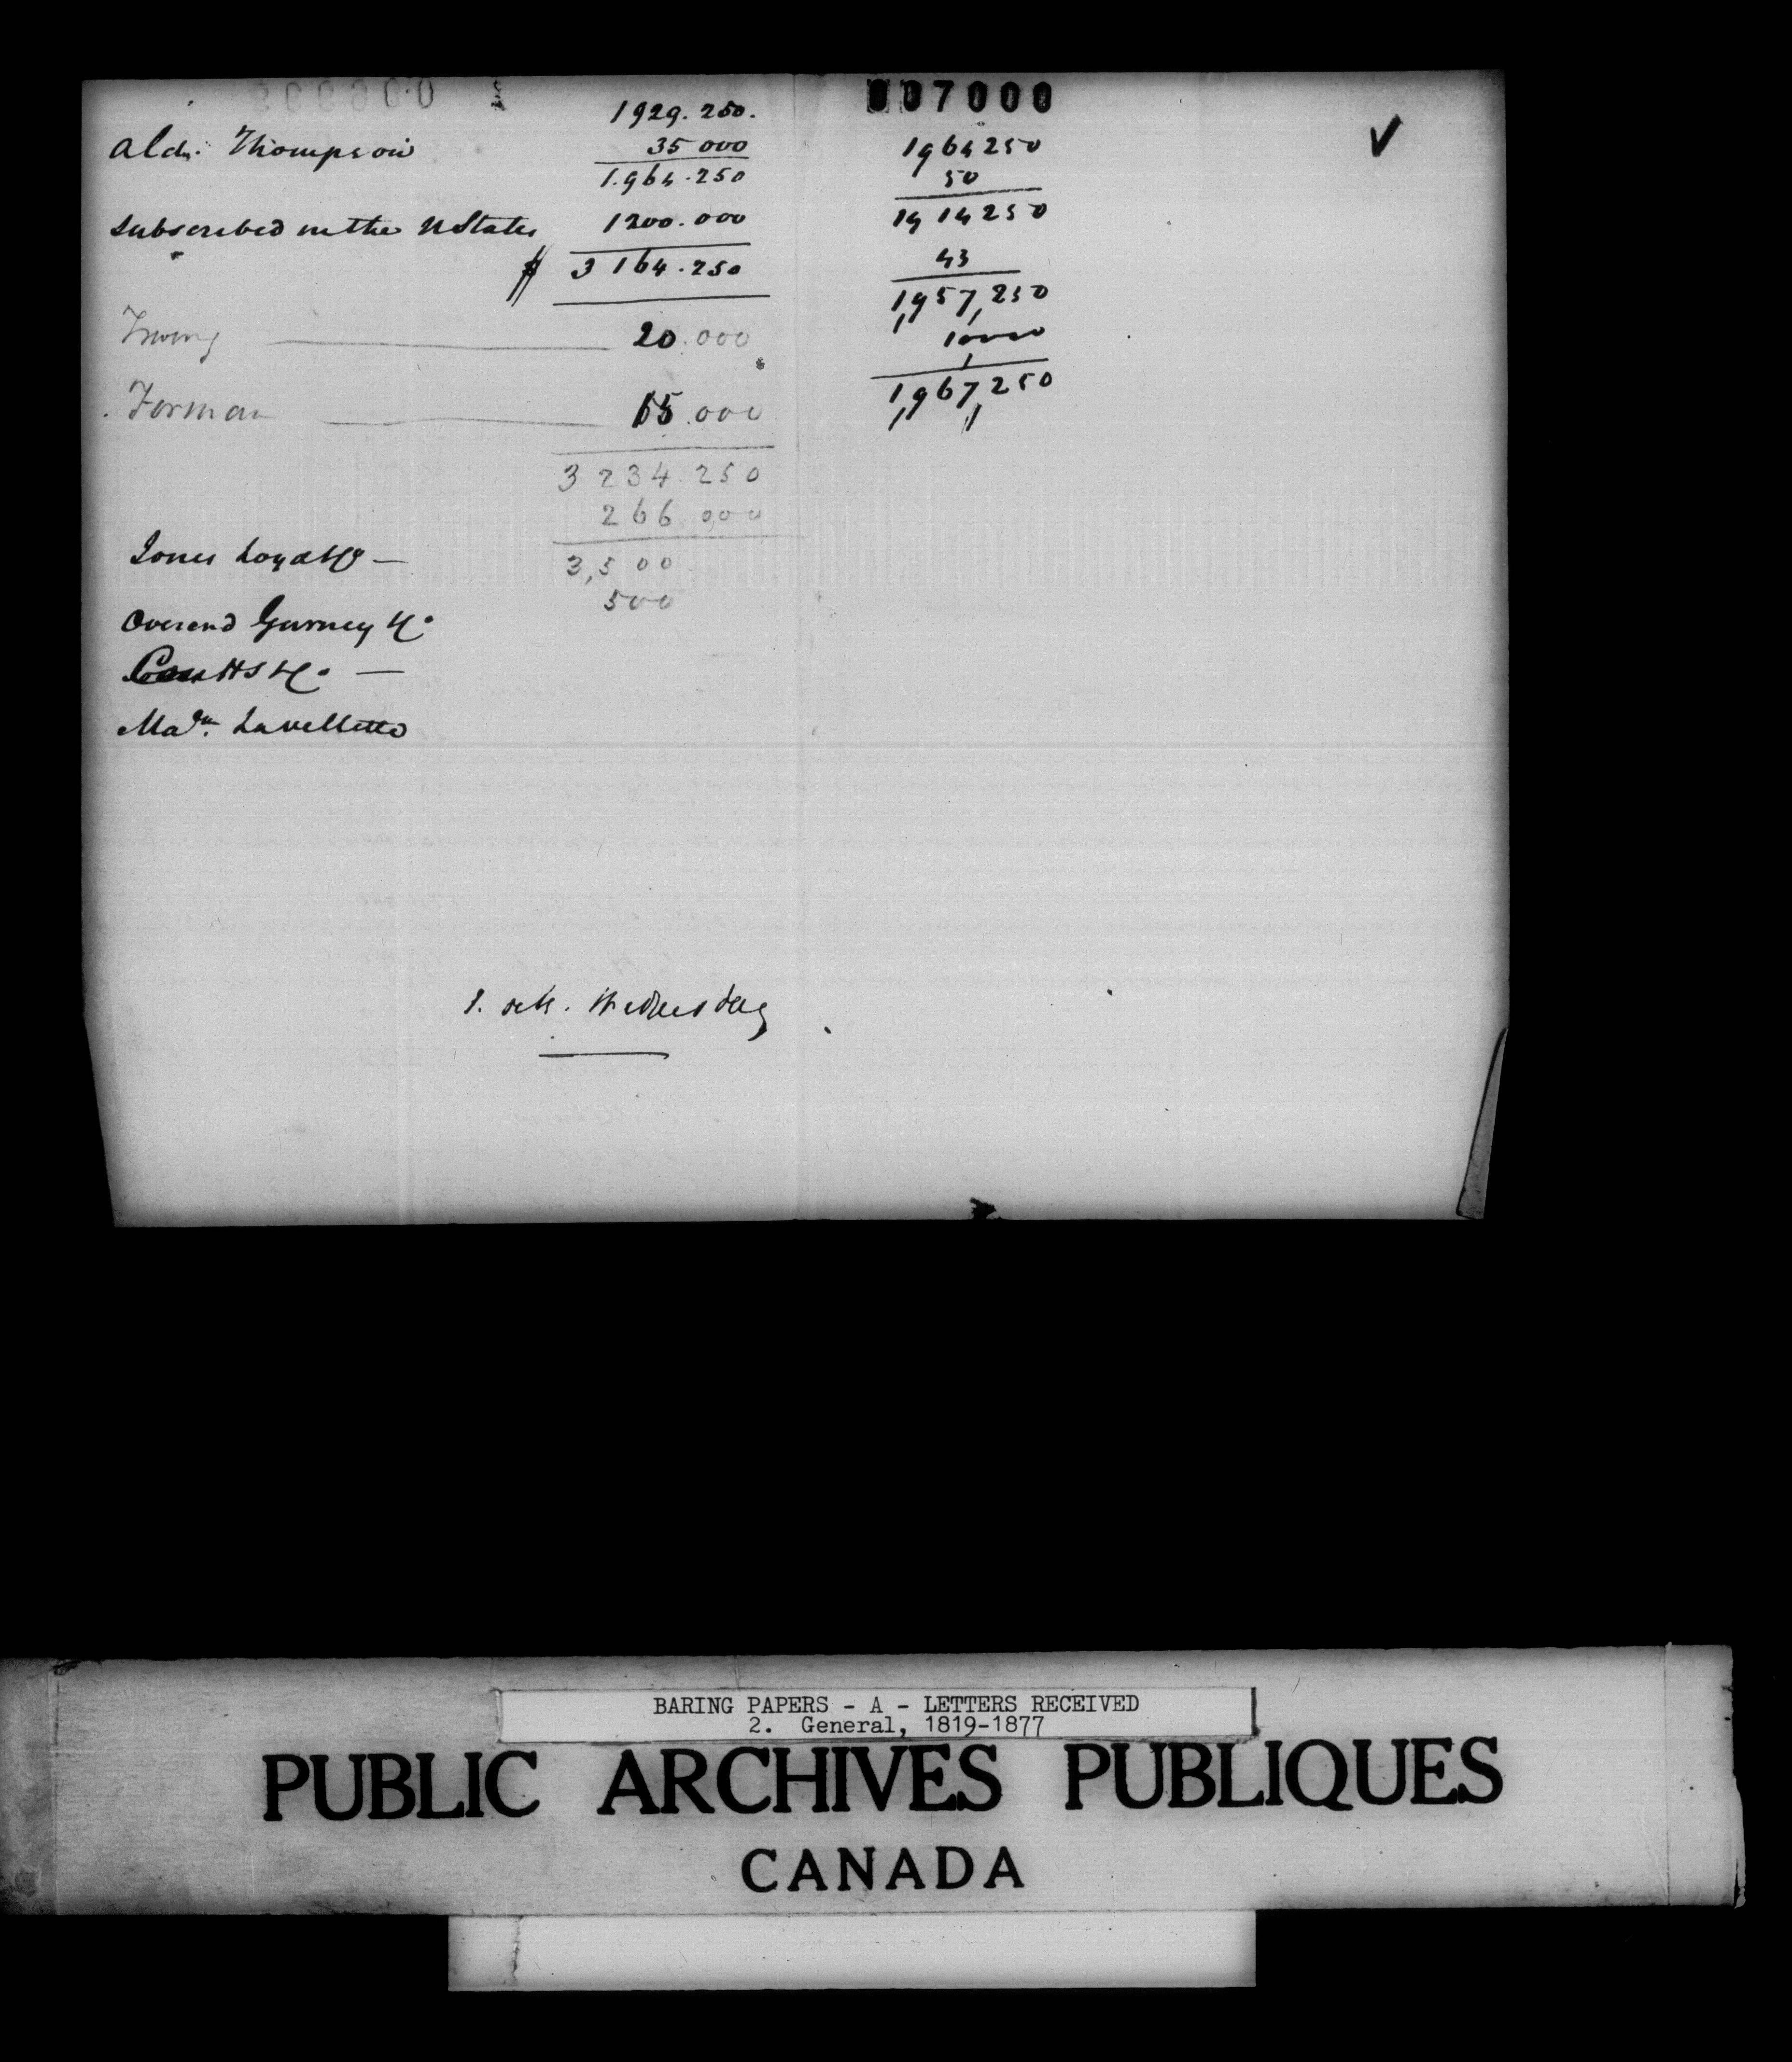 007000
1929.250.
Aldn. Thompson 35 000
1.964.250
Subscribed in the UStates 1200.000
$ 3 164.250
Irving 20.000
Forman 15.000
3 234.250
266.000
3,500.
500
Jones Loyd & Co —
Overend Gurney & Co.
Coutts & Co. —
Madm. Lavellette
1964250
50
1914250
43
1,957,250
10000
1,967,250
1. Oct. Wednesday
BARING PAPERS - A - LETTERS RECEIVED
2. General, 1819-1877
PUBLIC ARCHIVES PUBLIQUES
CANADA